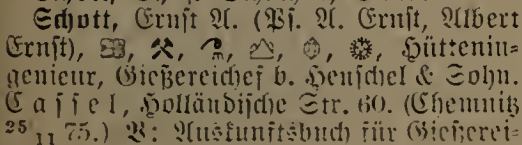 Schott, Ernst A. (Ps. A. Ernst, Albert
Ernst), Hütteniu=
genieur, Gießereichef b. Henschel & Sohn.
Cassel, Holländische Str. 60. (Chemnitz
25 11 75.) V: Auskunftsbuch für Gießerei=